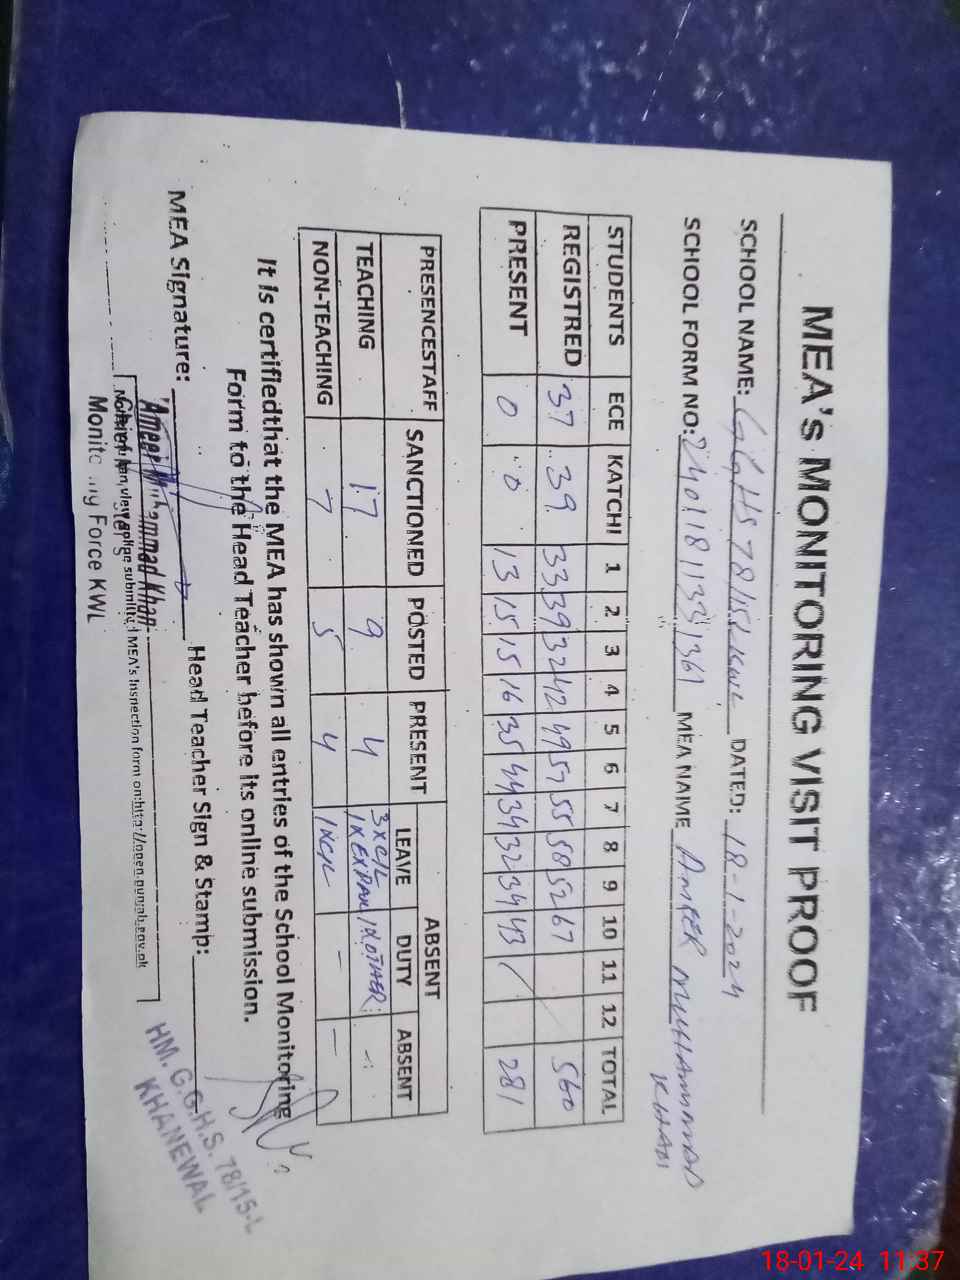 MEA's MONITORING VISIT PROOF
SCHOOL NAME: GGHS 78/15L KWL DATED: 18-1-2024
SCHOOL FORM NO: MEA NAME AMEER MUHAMMAD
KHAN
STUDENTS ECE KATCHI 1 2 3 4 5 6 7 8 9 10 11 12 TOTAL
REGISTRED 37 39 33 39 32 42 49 57 55 58 52 67 / 560
PRESENT 0 0 13 15 15 16 35 44 34 32 34 43 / 281
PRESENCESTAFF SANCTIONED POSTED PRESENT ABSENT
LEAVE DUTY ABSENT
TEACHING 17 9 4 3xC/L 1xOTHER -
NON-TEACHING 7 5 4 1xC/L - -
It is certifiedthat the MEA has shown all entries of the School Monitoring
Form to the Head Teacher before its online submission.
MEA Signature: Head Teacher Sign & Stamp:
Ameer Muhammad Khan
view online submitted MEA's Inspection form on:http://open.punjab.gov.pk
Force KWL
HM. G.G.H.S. 78/15-L
KHANEWAL
18-01-24 11:37